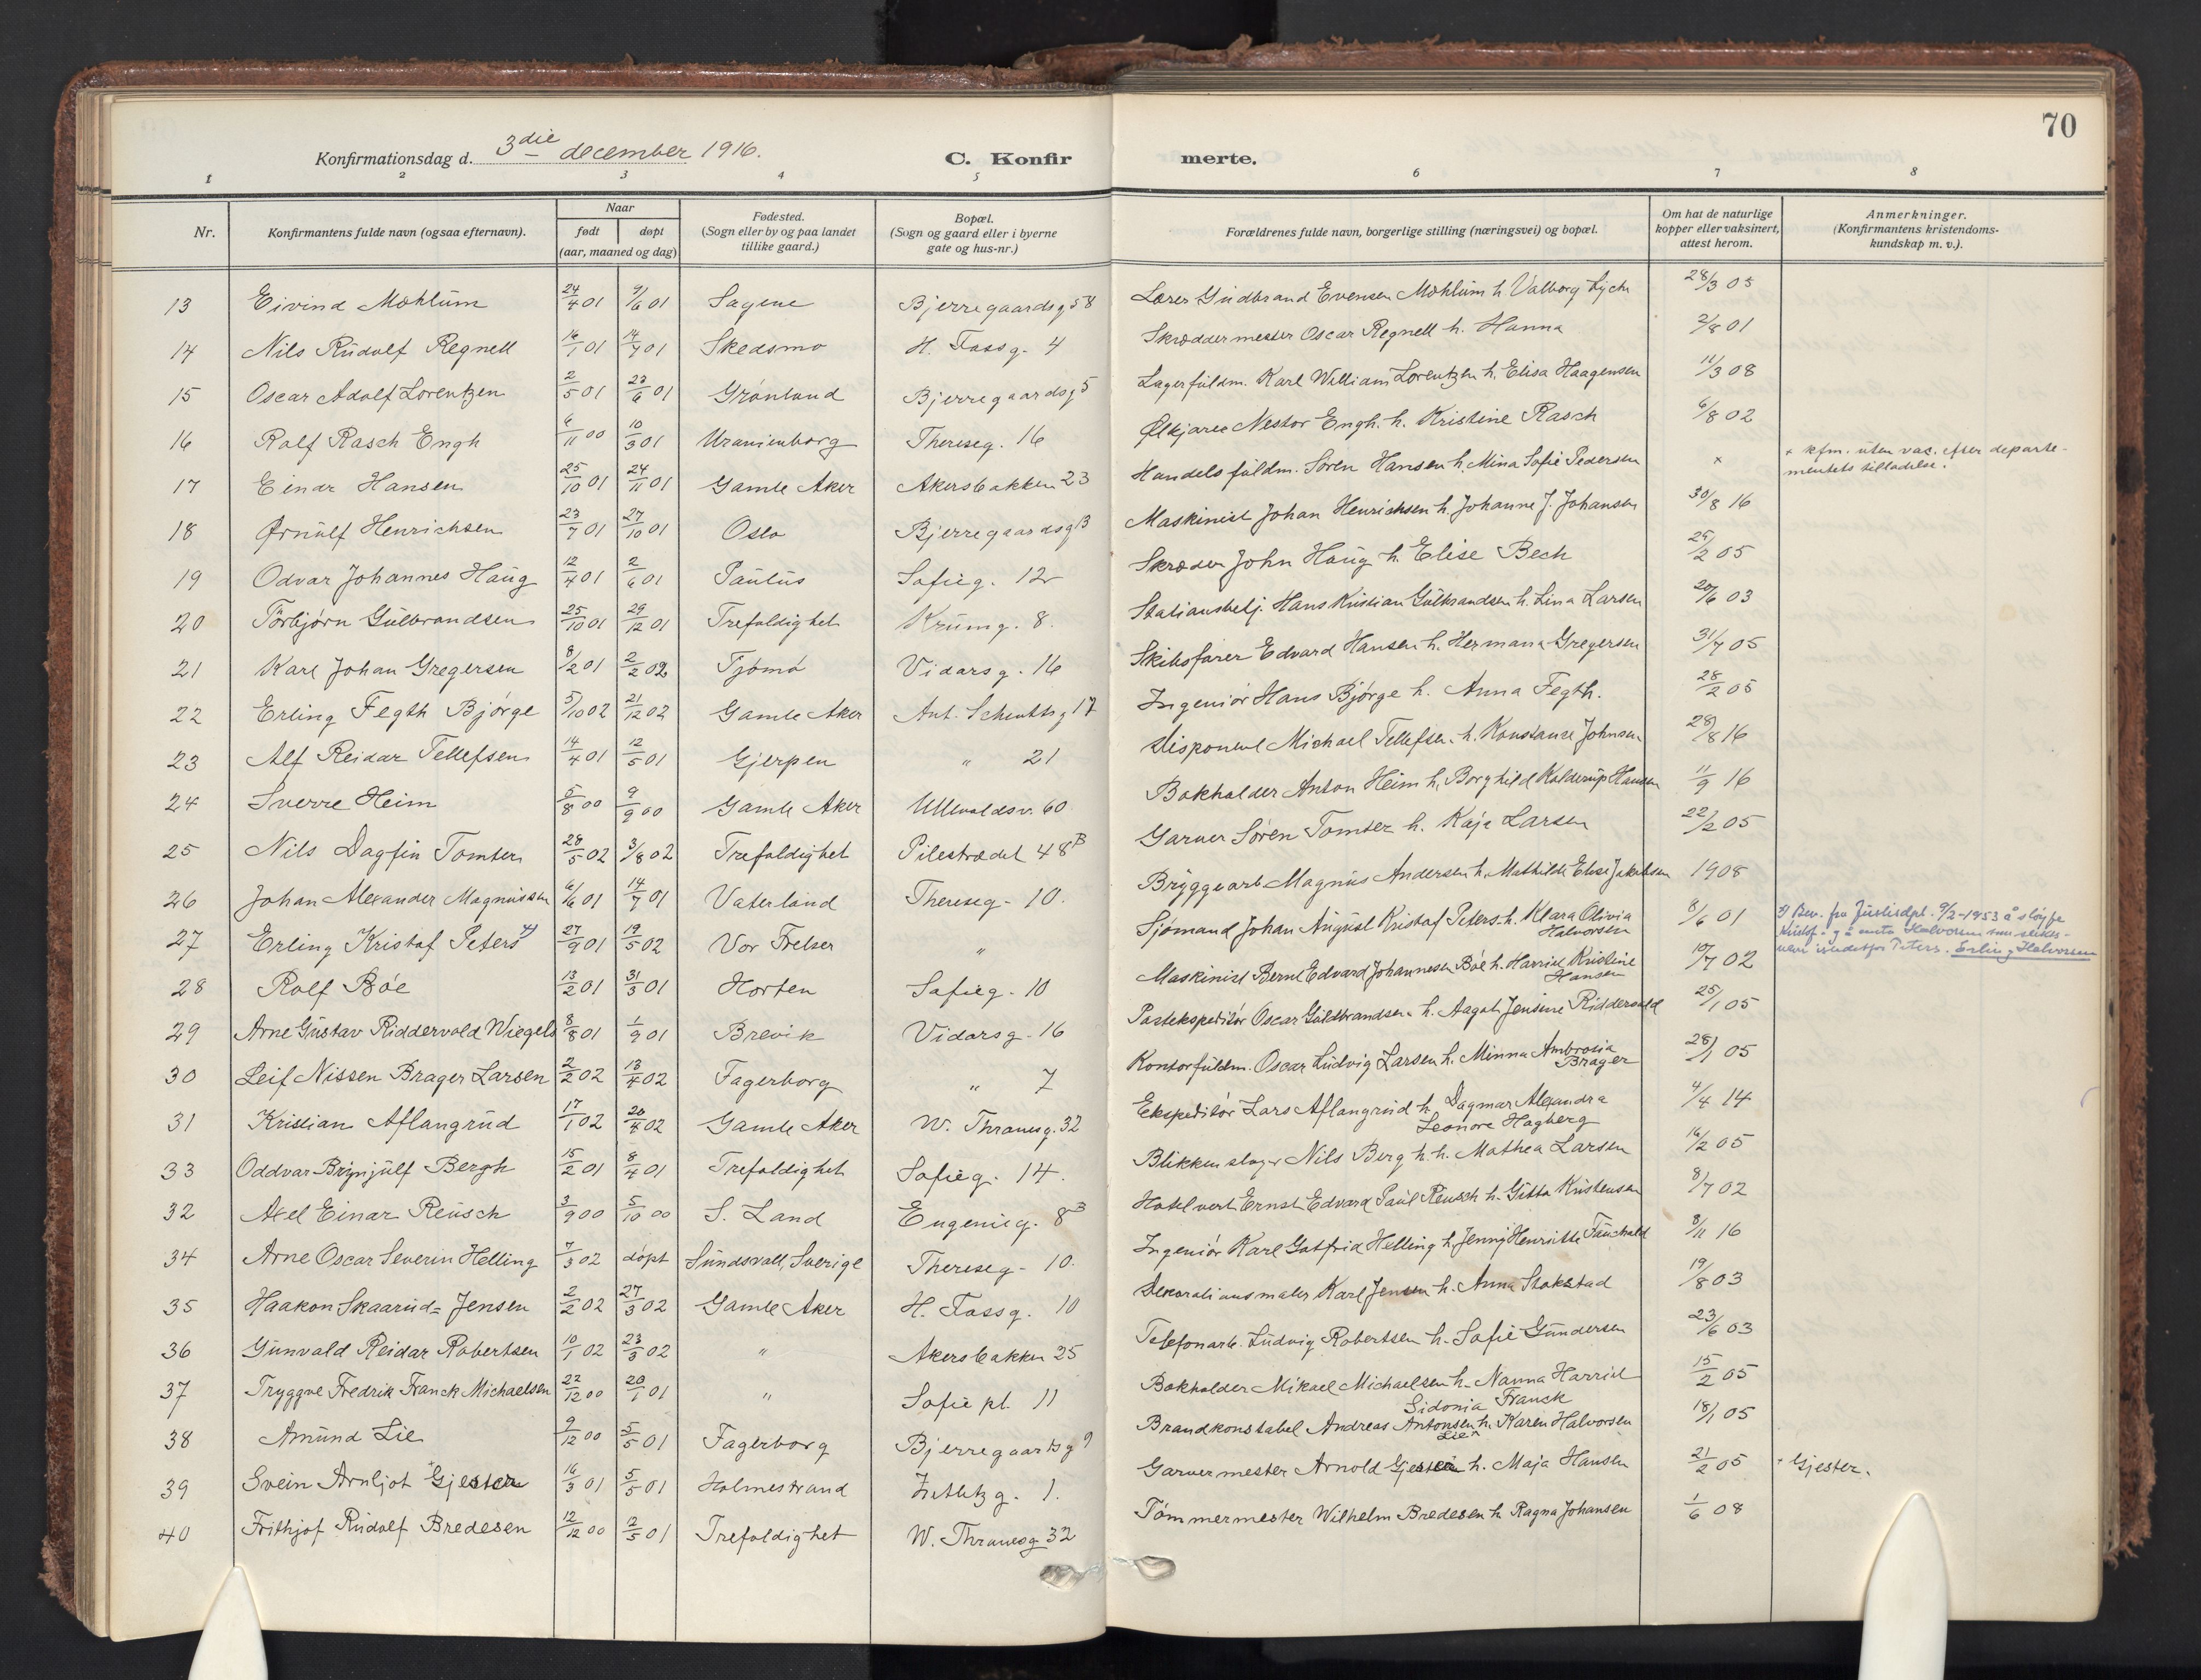 70
Konfirmationsdag d. 3die december 1916. C. Konfirmerte.
1 2 3 4 5 6 7 8
Nr. Konfirmantens fulde navn (ogsaa efternavn). Naar født døpt (aar, maaned og dag) Fødested. (Sogn eller by og paa landet tillike gaard.) Bopæl. (Sogn og gaard eller i byerne gate og hus-nr.) Forældrenes fulde navn, borgerlige stilling (næringsvei) og bopæl. Om hat de naturlige kopper eller vaksinert, attest herom. Anmerkninger. (Konfirmantens kristendomskundskap m. v.).
13 Eivind Mæhlum 24/4 01 9/6 01 Sagene Bjerregaardsg 58 Lærer Gudbrand Evensen Mæhlum h. Valborg 28/3 05
14 Nils Rudolf Regnell 16/1 01 14/4 01 Skedsmo H. Fossg. 4 Skræddermester Oscar Regnell h. Hanna 2/8 01
15 Oscar Adolf Lorentzen 2/5 01 23/6 01 Grønland Bjerregaardsg 5 Lagerfuldm. Karl William Lorentzen h. Elisa Haagensen 11/3 08
16 Rolf Rasch Engh 6/11 00 10/3 01 Uranienborg Thereseg. 16 Ølkjører Nestor Engh. h. Kristine Rasch 6/8 02
17 Einar Hansen 25/10 01 24/11 01 Gamle Aker Akersbakken 23 Handelsfuldm. Søren Hansen h. Mina Sofie Pedersen × × kfm. uten vac. efter departementets tilladelse.
18 Ørnulf Henrichsen 23/7 01 27/10 01 Oslo Bjerregaardsg 13 Maskinist Johan Henrichsen h. Johanne J. Johansen 30/8 16
19 Odvar Johannes Haug 12/4 01 2/6 01 Paulus Sofieg. 12 Skræder John Haug h. Elise Bech 25/2 05
20 Torbjørn Gulbrandsen 25/10 01 29/12 01 Trefoldighet Krumg. 8. Stationsbetj. Hans Kristian Gulbrandsen h. Lina Larsen 20/6 03
21 Karl Johan Gregersen 8/2 01 2/2 02 Tjømø Vidarsg. 16 Skibsfører Edvard Hansen h. Hermana Gregersen 31/7 05
22 Erling Fegth Bjørge 5/10 02 21/12 02 Gamle Aker Ant. Schouttsg 17 Ingeniør Hans Bjørge h. Anna Fegth. 28/2 05
23 Alf Reidar Tellefsen 14/4 01 12/5 01 Gjerpen " 21 Disponent Michael Tellefsen h. Konstanse Johnsen 28/8 16
24 Sverre Heim 5/8 00 9/9 00 Gamle Aker Ullevoldsv. 60 Bokholder Anton Heim h. Borghild Kolderup Hansen 11/9 16
25 Nils Dagfin Tomter 28/5 02 3/8 02 Trefoldighet Pilestrædet 48B Garver Søren Tomter h. Kaja Larsen 22/2 05
26 Johan Alexander Magnussen 6/6 01 14/7 01 Vaterland Thereseg. 10. Bryggearb. Magnus Andersen h. Mathilde Elise Jakobsen 1908
27 Erling Kristof Peters ×) 27/9 01 19/5 02 Vor Frelser " Sjømand Johan August Kristof Peters h. Klara Olivia Halvorsen 8/6 01 ×) Bev. fra Justisdpt. 9/2-1953 å sløyfe Kristof og å anta Halvorsen som slektsnavn istedetfor Peters. Erling Halvorsen
28 Rolf Bøe 13/2 01 31/3 01 Horten Sofieg. 10 Maskinist Bernt Edvard Johannesen Bøe h. Harriet Kristine Hansen 10/7 02
29 Arne Gustav Riddervold Wiegels 8/8 01 1/9 01 Brevik Vidarsg. 16 Postekspeditør Oscar Guldbrandsen h. Aagot Jensine Riddervold 25/1 05
30 Leif Nissen Brager Larsen 2/2 02 13/4 02 Fagerborg " 7 Kontorfuldm. Oscar Ludvig Larsen h. Minna Ambrosia Brager 28/1 05
31 Kristian Aflangrud 17/1 02 20/4 02 Gamle Aker W. Thranesg. 32 Ekspeditør Lars Aflangrud h. Dagmar Alexandra Leonore Hagberg 4/4 14
33 Oddvar Brynjulf Bergh 15/2 01 8/4 01 Trefoldighet Sofieg. 14. Blikkenslager Nils Bergh h. Mathea Larsen 16/2 05
32 Axel Einar Reusch 3/9 00 5/10 00 S. Land Eugenieg. 8B Hotelvert Ernst Edvard Paul Reusch h. Gitta Kristensen 8/7 02
34 Arne Oscar Severin Helling 7/3 02 døpt Sundsvall, Sverige Thereseg. 10. Ingeniør Karl Gotfrid Helling h. Jenny Henriette Fauchald 8/11 16
35 Haakon Skaarud= Jensen 2/2 02 27/3 02 Gamle Aker H. Fossg. 10 Dekorationsmaler Karl Jensen h. Anna Stokstad 19/8 03
36 Gunvald Reidar Robertsen 10/1 02 23/3 02 " Akersbakken 25 Telefonarb. Ludvig Robertsen h. Sofie Gundersen 23/6 03
37 Tryggve Fredrik Franck Michaelsen 22/12 00 20/1 01 " Sofie pl. 11 Bokholder Mikael Michaelsen h. Nanna Harriet Sidonia Franck 15/2 05
38 Amund Lie 9/12 00 5/5 01 Fagerborg Bjerregaardsg 9 Brandkonstabel Andreas Antonsen Lie h. Karen Halvorsen 18/1 05
39 Svein Arnljot Gjester 16/3 01 5/5 01 Holmestrand Zetlitzg. 1. Garvermester Arnold Gjester h. Maja Hansen 21/2 05 Gjester.
40 Frithjof Rudolf Bredesen 12/12 00 2/5 01 Trefoldighet W. Thranesg 32 Tømmermester Wilhelm Bredesen h. Ragna Johansen 1/6 08